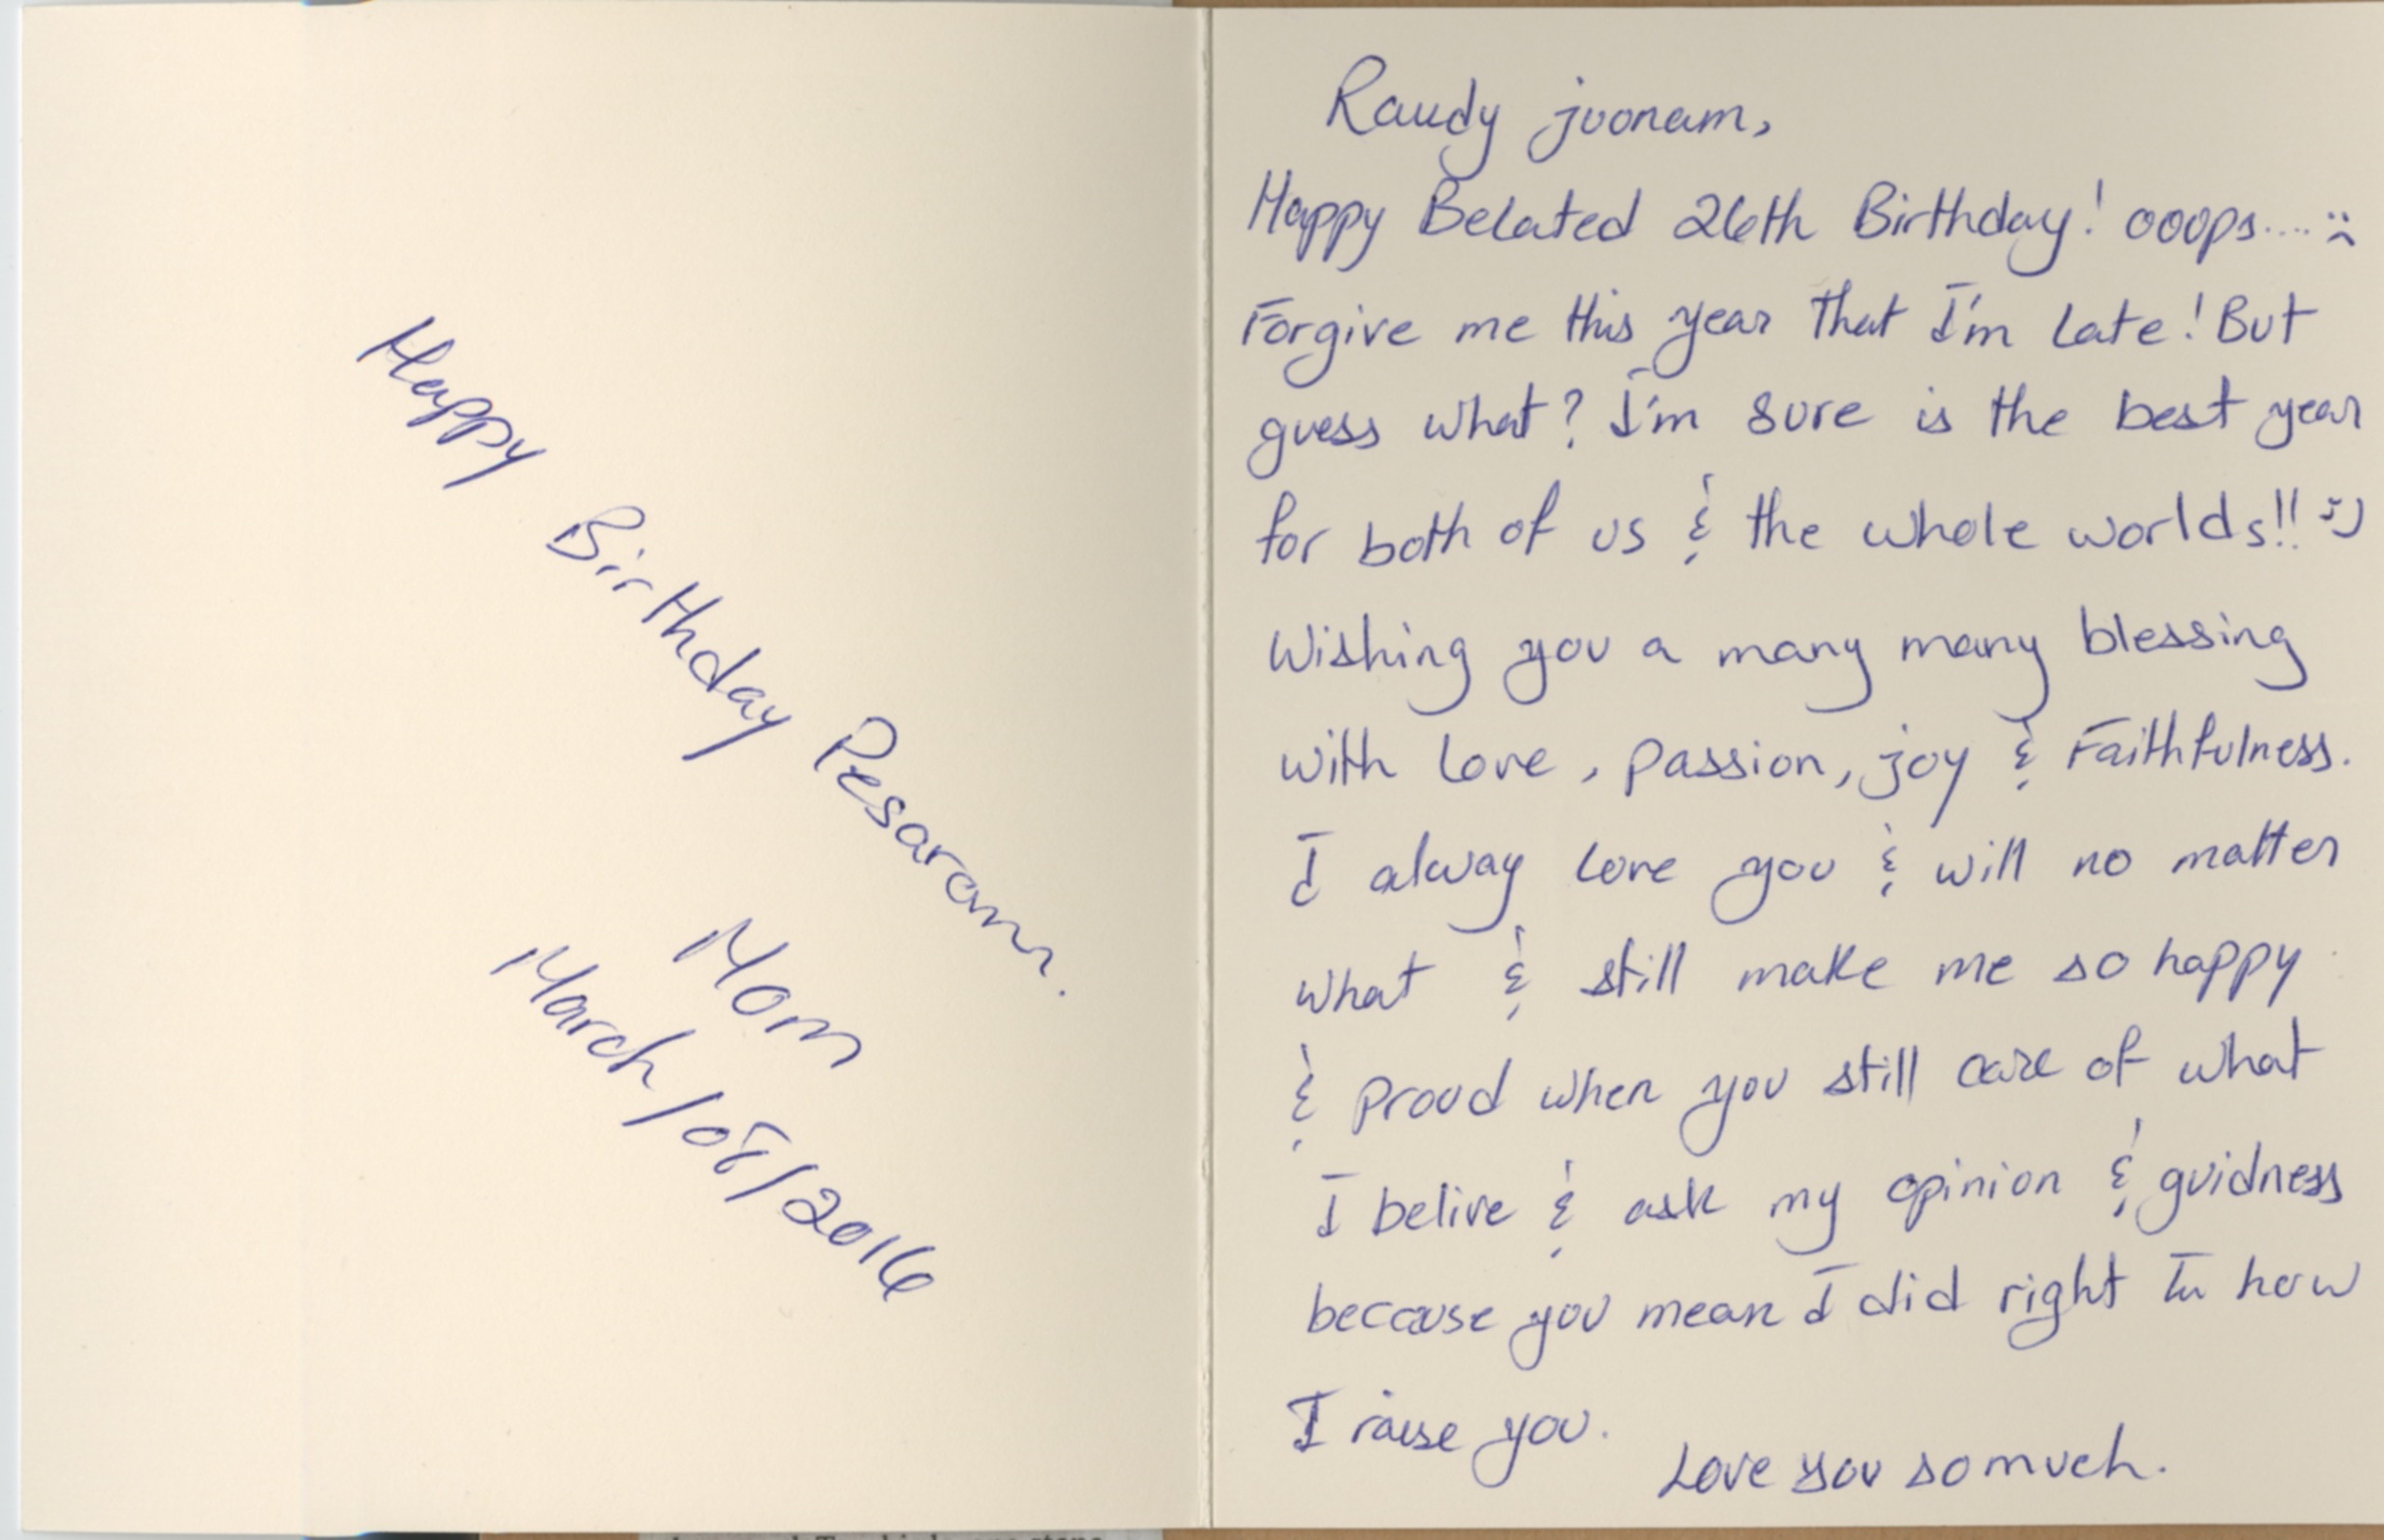 Happy Birthday Pesaram.
Mom
March/08/2016
Raudy joonam,
Happy Belated 26th Birthday! ooops.... :(
Forgive me this year that I'm late! But
guess what? I'm sure is the best year
for both of us & the whole worlds!! :)
Wishing you a many many blessing
with love, passion, joy & Faithfulness.
I alway love you & will no matter
what & still make me so happy
& proud when you still care of what
I belive & ask my opinion & guidness
because you mean I did right in how
I raise you.
Love you so much.